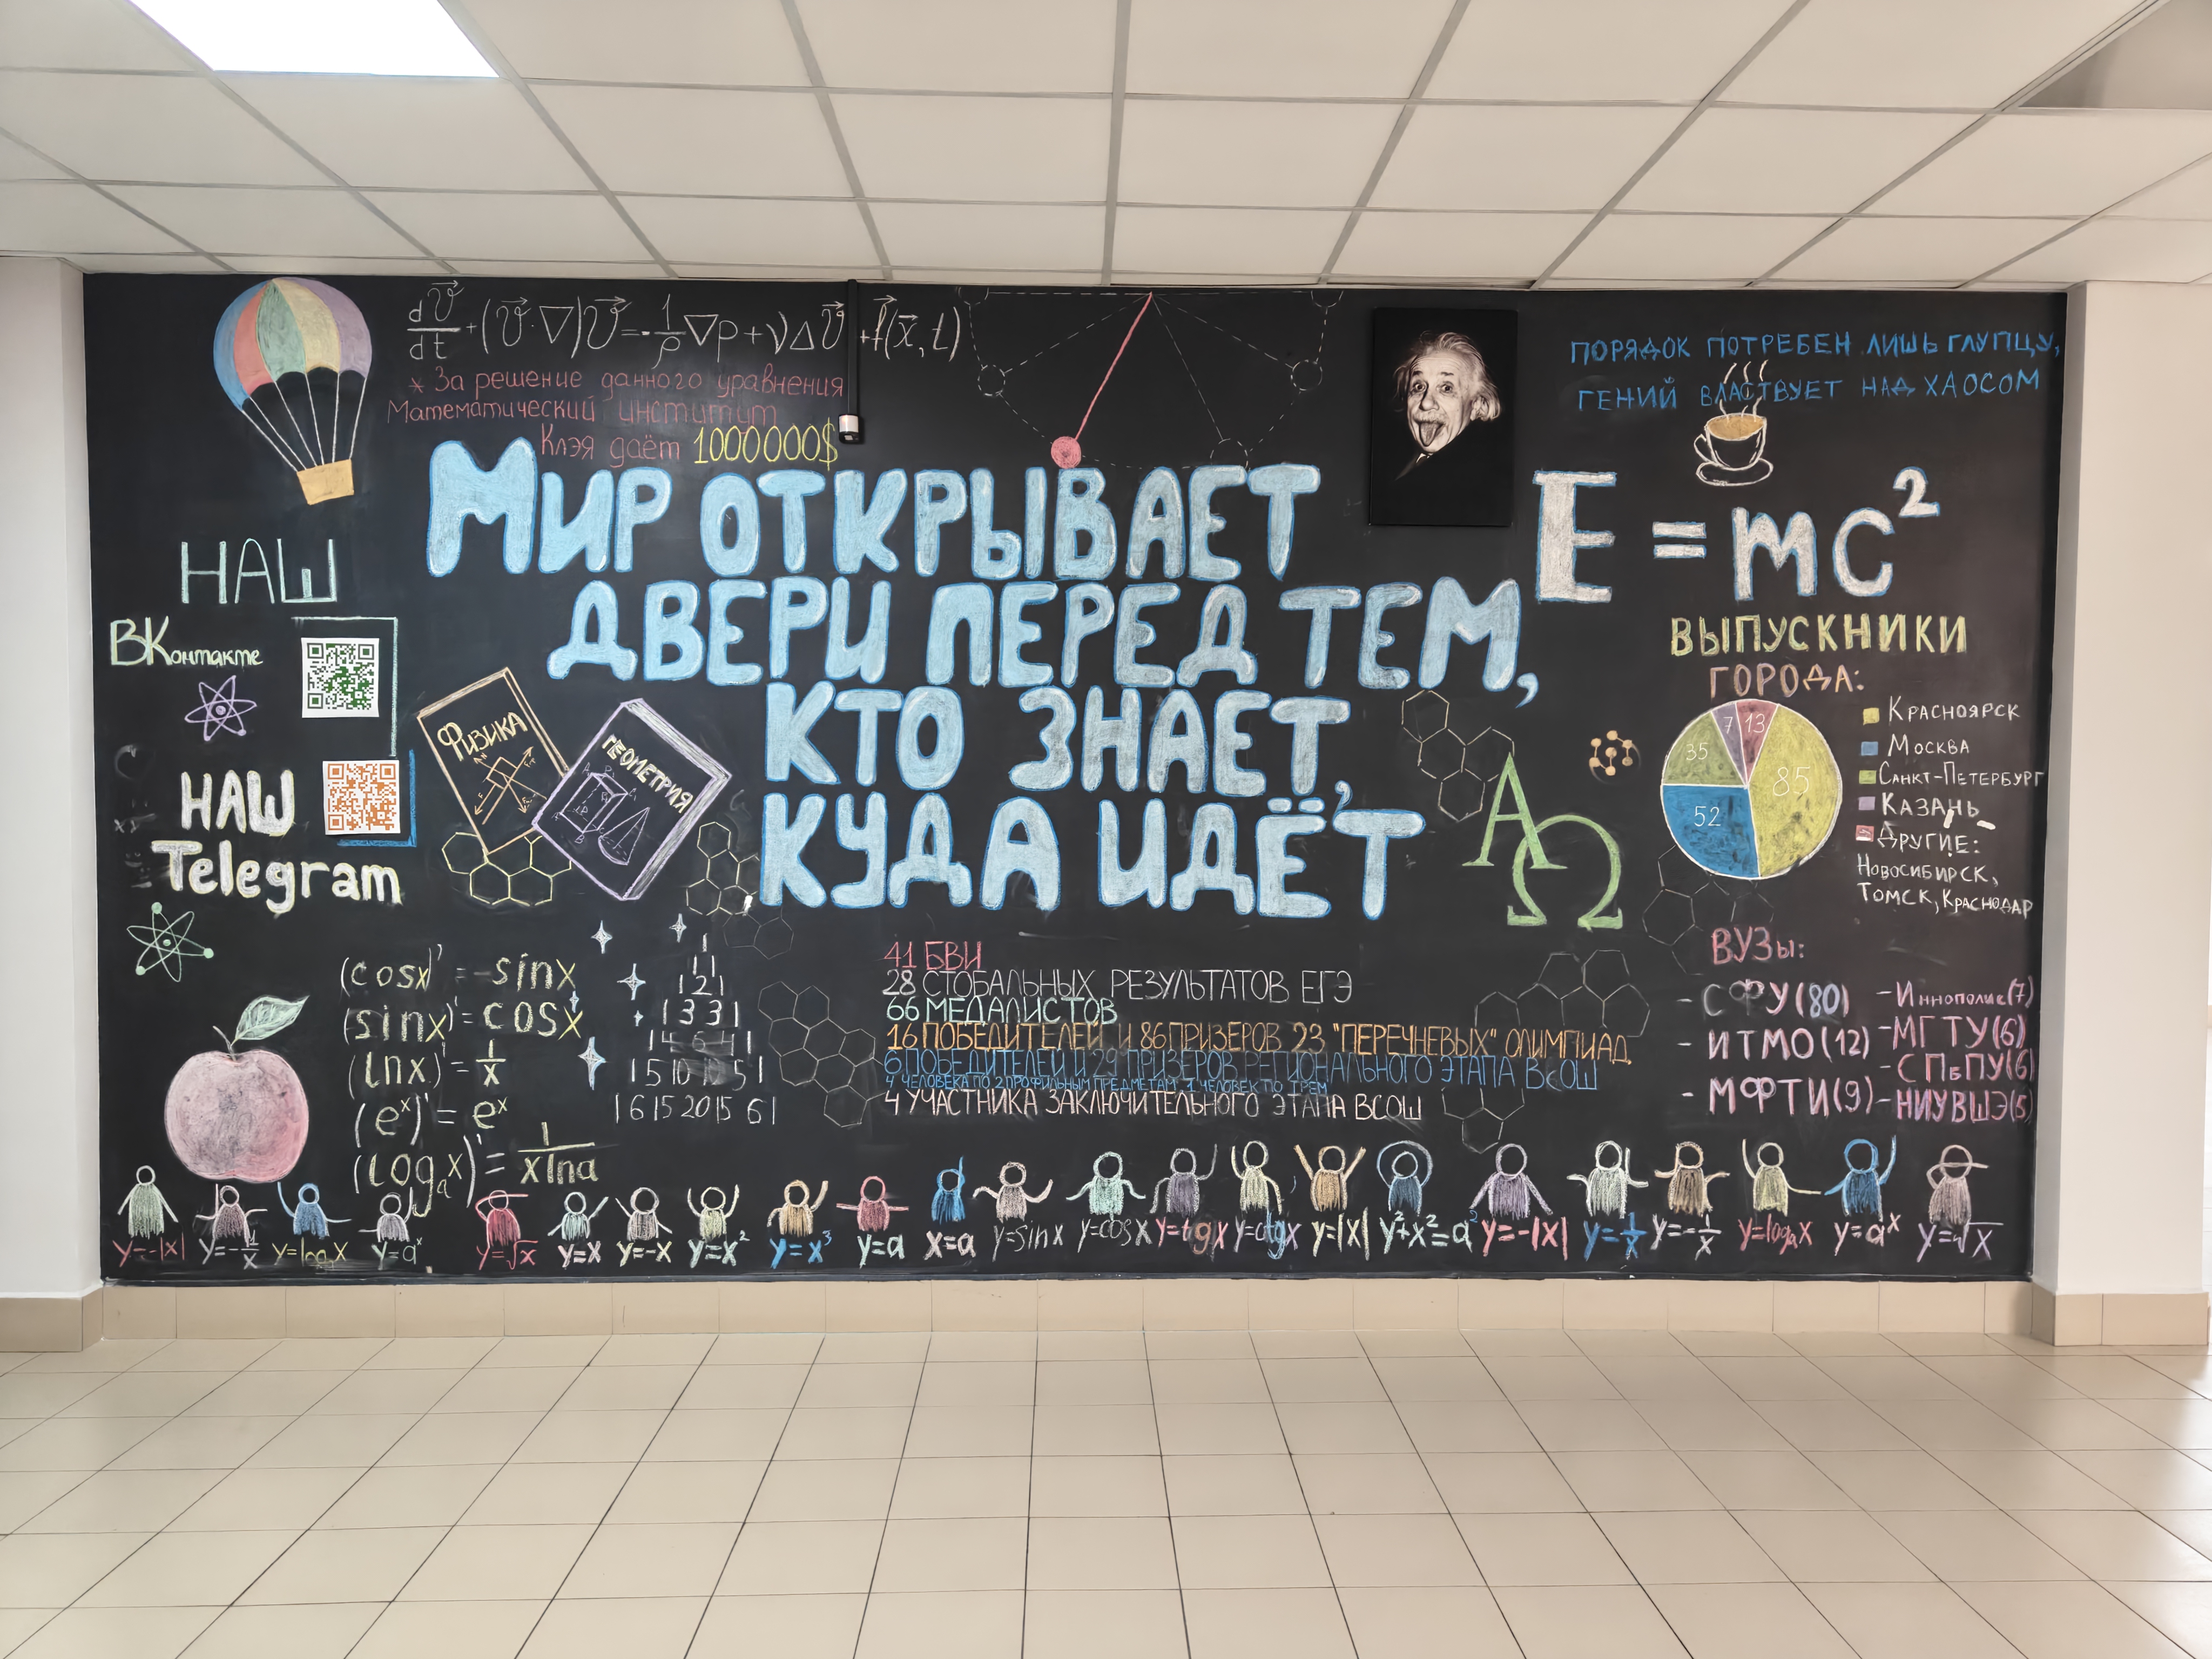 dv⃗/dt + (v⃗·∇)v⃗ = -1/ρ ∇p + νΔv⃗ + f⃗(x⃗,t)
* За решение данного уравнения
Математический институт
Клэя даёт 1000000$
ПОРЯДОК ПОТРЕБЕН ЛИШЬ ГЛУПЦУ,
ГЕНИЙ ВЛАСТВУЕТ НАД ХАОСОМ
Мир открывает
двери перед тем,
кто знает,
куда идёт
E = mc²
НАШ
ВКонтакте
НАШ
Telegram
Физика
ГЕОМЕТРИЯ
Α
Ω
ВЫПУСКНИКИ
ГОРОДА:
7 13
35
85
52
Красноярск
Москва
Санкт-Петербург
Казань
Другие:
Новосибирск,
Томск, Краснодар
(cosx)' = -sinx
(sinx)' = cosx
(lnx)' = 1/x
(eˣ)' = eˣ
(logₐx)' = 1/xlna
1
1 1
1 2 1
1 3 3 1
1 4 6 4 1
1 5 10 10 5 1
1 6 15 20 15 6 1
41 БВИ
28 СТОБАЛЬНЫХ РЕЗУЛЬТАТОВ ЕГЭ
66 МЕДАЛИСТОВ
16 ПОБЕДИТЕЛЕЙ И 86 ПРИЗЕРОВ 23 "ПЕРЕЧНЕВЫХ" ОЛИМПИАД
6 ПОБЕДИТЕЛЕЙ И 29 ПРИЗЕРОВ РЕГИОНАЛЬНОГО ЭТАПА ВСОШ
4 ЧЕЛОВЕКА ПО 2 ПРОФИЛЬНЫМ ПРЕДМЕТАМ 1 ЧЕЛОВЕК ПО ТРЕМ
4 УЧАСТНИКА ЗАКЛЮЧИТЕЛЬНОГО ЭТАПА ВСОШ
ВУЗы:
- СФУ(80)
- ИТМО(12)
- МФТИ(9)
- Иннополис(7)
- МГТУ(6)
- СПбПУ(6)
- НИУ ВШЭ(5)
y=-|x| y=-1/x y=logₐx y=aˣ y=√x y=x y=-x y=x² y=x³ y=a x=a y=sinx y=cosx y=tgx y=ctgx y=|x| y²+x²=a² y=-|x| y=-1/x y=-1/x y=logₐx y=aˣ y=√x